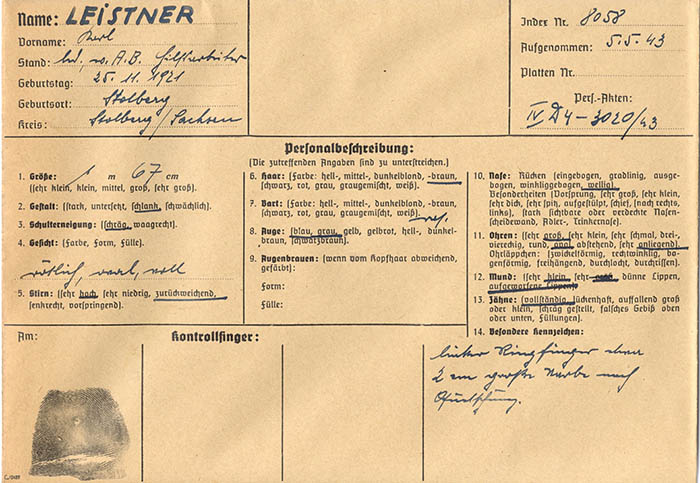 Name: LEISTNER
Vorname: Karl
Stand: led., v. A.B. Hilfsarbeiter
Geburtstag: 25. 11. 1921
Geburtsort: Stolberg
Kreis: Stolberg/Sachsen
Index Nr. 8058
Aufgenommen: 5.5.43
Platten Nr.
Pers.-Akten:
IV D 4 - 3020/43
Personalbeschreibung:
(Die zutreffenden Angaben sind zu unterstreichen.)
1. Größe: 1 m 67 cm
(sehr klein, klein, mittel, groß, sehr groß).
2. Gestalt: (stark, untersetzt, schlank, schwächlich).
3. Schulterneigung: (schräg, waagrecht).
4. Gesicht: (Farbe, Form, Fülle).
rötlich, oval, voll
5. Stirn: (sehr hoch, sehr niedrig, zurückweichend,
senkrecht, vorspringend).
6. Haar: (Farbe: hell-, mittel-, dunkelblond, -braun,
schwarz, rot, grau, graugemischt, weiß).
7. Bart: (Farbe: hell-, mittel-, dunkelblond, -braun,
schwarz, rot, grau, graugemischt, weiß).
8. Auge: (blau, grau, gelb, gelbrot, hell-, dunkel-
braun, schwarzbraun).
9. Augenbrauen: (wenn vom Kopfhaar abweichend,
gefärbt):
Form:
Fülle:
10. Nase: Rücken (eingebogen, gradlinig, ausge-
bogen, winkliggebogen, wellig).
Besonderheiten (Vorsprung, sehr groß, sehr klein,
sehr dick, sehr spitz, aufgestülpt, schief, (nach rechts,
links), stark sichtbare oder verdeckte Nasen-
scheidewand, Adler-, Trinkernase).
11. Ohren: (sehr groß, sehr klein, sehr schmal, drei-,
viereckig, rund, oval, abstehend, sehr anliegend).
Ohrläppchen: (zwickelförmig, rechtwinklig, bo-
genförmig, freihängend, durchlocht, durchrissen).
12. Mund: (sehr klein, sehr groß, dünne Lippen,
aufgeworfene Lippen)
13. Zähne: (vollständig, lückenhaft, auffallend groß
oder klein, schräg gestellt, falsches Gebiß oben
oder unten, Füllungen).
14. Besondere Kennzeichen:
linker Ringfinger oben
2 cm große Narbe nach
Quetschung.
Am:
Kontrollfinger: